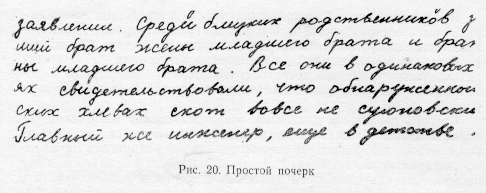 заявлении. Среди близких родственников з
ший брат жены младшего брата и брат
ны младшего брата. Все они в одинаковых
ях свидетельствовали, что обнаруженной
ских хлевах скот вовсе не суконовски
Главный же инженер, еще в детстве.
Рис. 20. Простой почерк